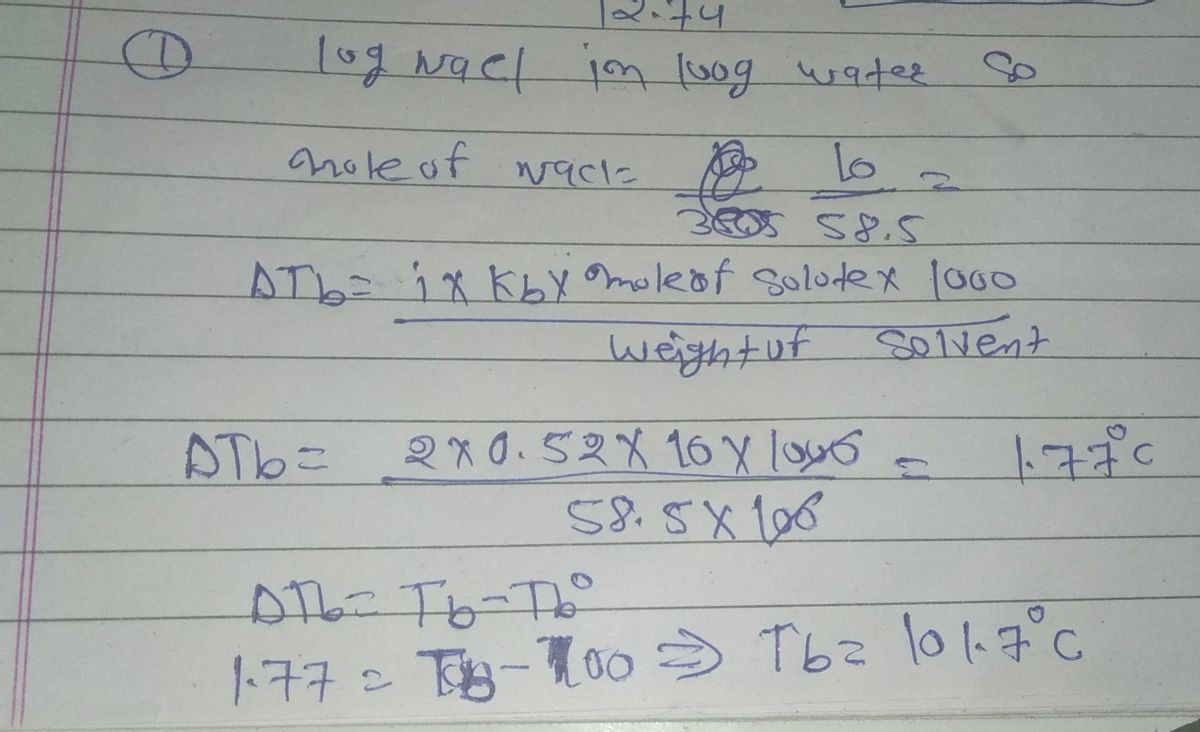 12.74
① 10g NaCl in 100g water So
mole of NaCl = 10 =
58.5
ΔTb = i x Kb x mole of Solute x 1000
Weight of Solvent
ΔTb = 2 x 0.52 x 10 x 1000 = 1.77°C
58.5 x 100
ΔTb = Tb - Tb°
1.77 = Tb - 100 ⇒ Tb = 101.7°C